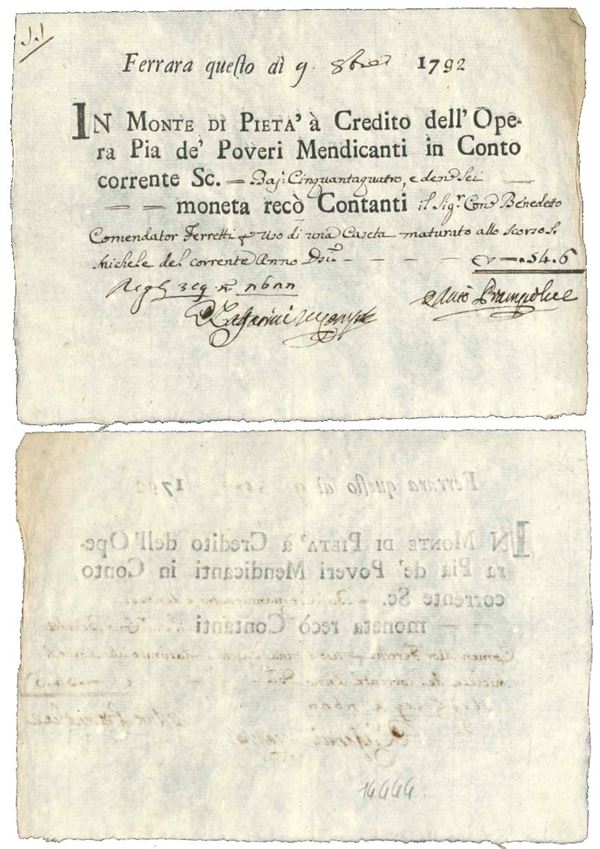 Ferrara questo dì 9. 8bre 1792
IN MONTE DI PIETA' à Credito dell' Ope-
ra Pia de' Poveri Mendicanti in Conto
corrente Sc. — Baj: Cinquantaquatro, e den: Sei
— — moneta recò Contanti il Sig:r Con: Benedeto
Comendator Ferretti p Uso di una Caseta maturato allo scorso S.
Michele del corrente Anno — — — — — 54.6
14444